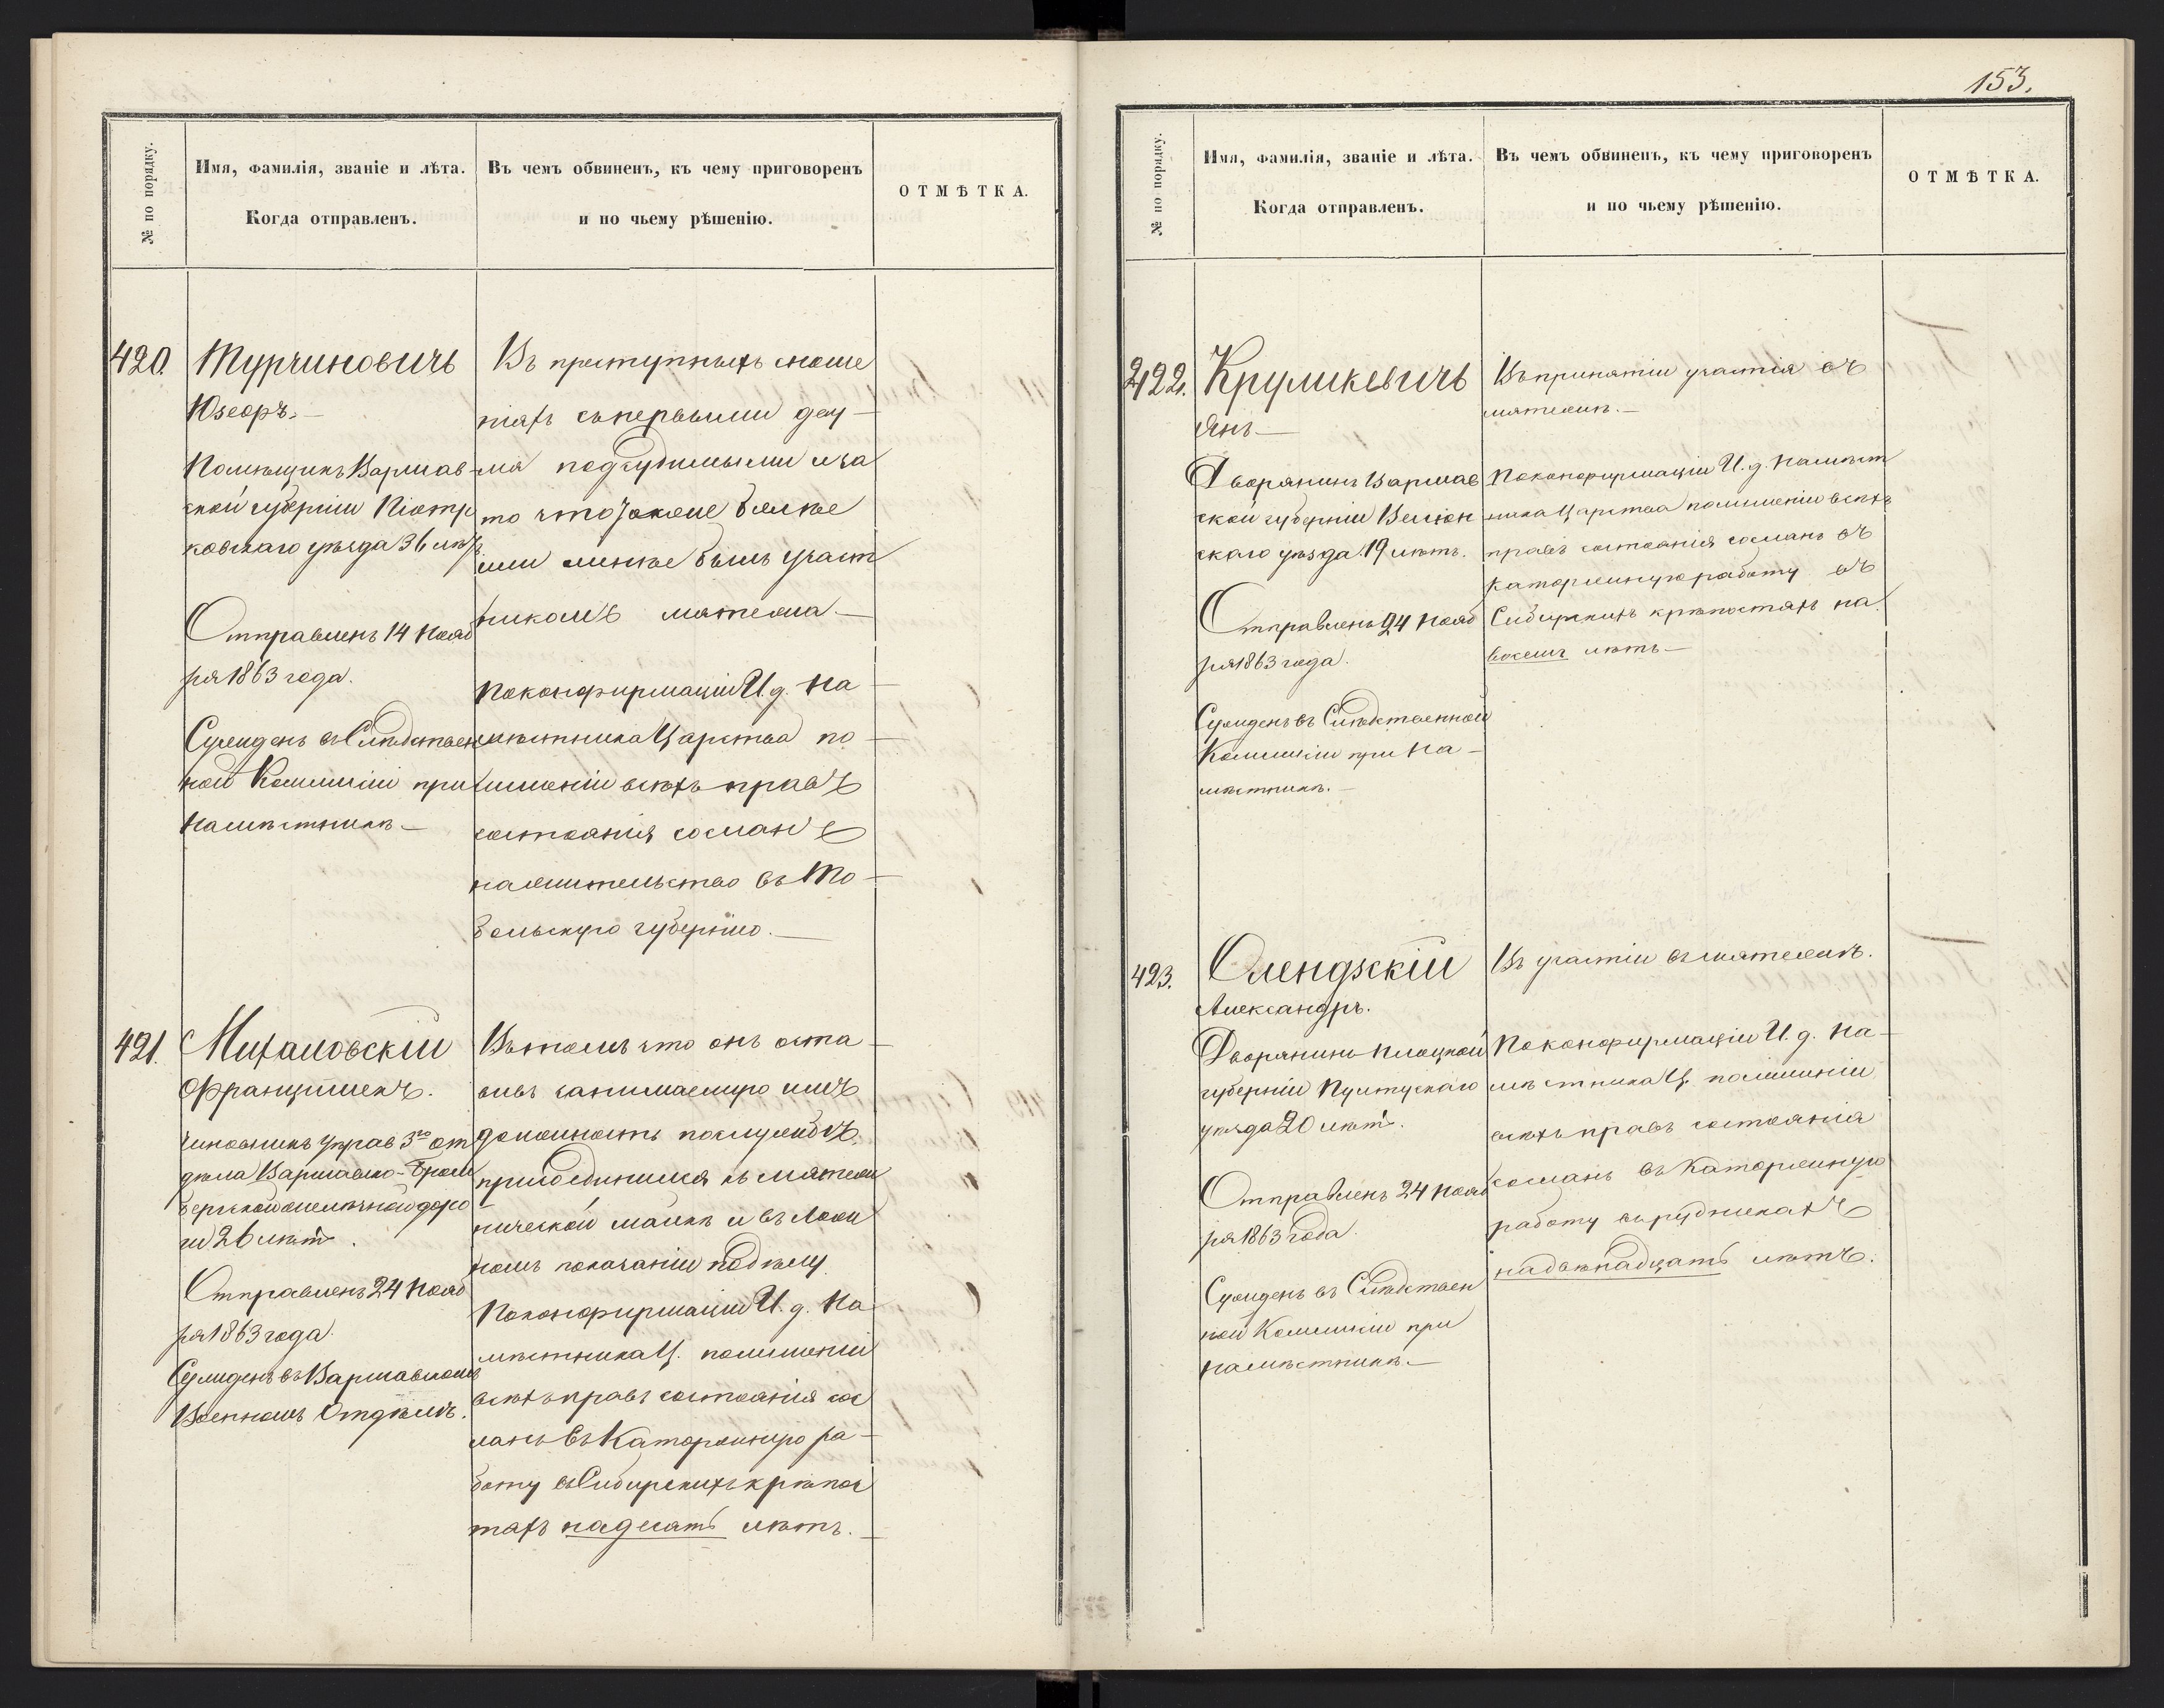 № по порядку.
Имя, фамилія, званіе и лѣта.
Когда отправленъ.
Въ чемъ обвиненъ, къ чему приговоренъ
и по чьему рѣшенію.
ОТМѢТКА.
420.
Турчиновичъ
Юзефъ.—
Помѣщикъ Варшав
ской губерніи Піотр
ковскаго уѣзда 36 лѣтъ.
Отправленъ 14 Нояб
ря 1863 года.
Сужденъ въ Слѣдствен
ной Коммисіи при
Намѣстникѣ.—
Въ преступныхъ сноше
ніяхъ съ первыми дву—
мя подсудимыми и за
то что также болѣе
или менѣе былъ участ
никомъ мятежа.—
По конфирмаціи И. д. На—
мѣстника Царства по—
лишеніи всѣхъ правъ
состоянія сосланъ
на жительство въ То—
больскую губернію.—
421.
Михаловскій
Францишекъ.
Чиновникъ управ 3го от
дѣла Варшавско-Бром
бергской желѣзной доро
ги 26 лѣтъ.
Отправленъ 24 Нояб
ря 1863 года.
Сужденъ въ Варшавскомъ
Военномъ Отдѣлѣ.
Въ томъ что онъ оста—
вивъ занимаемую имъ
должность по службѣ
присоединился къ мятеж
нической шайкѣ и въ лож
номъ показаніи подъ
По конфирмаціи И. д. На
мѣстника Ц. по лишеніи
всѣхъ правъ состоянія сос
ланъ въ Каторжную ра—
боту въ Сибирскихъ крѣпос
тяхъ на десять лѣтъ.—
153.
№ по порядку.
Имя, фамилія, званіе и лѣта.
Когда отправленъ.
Въ чемъ обвиненъ, къ чему приговоренъ
и по чьему рѣшенію.
ОТМѢТКА.
422.
Круликевичъ
Янъ—
Дворянинъ Варшав
ской губерніи Велюн
скаго уѣзда 19 лѣтъ.
Отправленъ 24 Нояб
ря 1863 года.
Сужденъ въ Слѣдственной
Коммисіи при На—
мѣстникѣ.—
Въ принятіи участія въ
мятежѣ.—
По конфирмаціи И. д. Намѣст
ника Царства по лишеніи всѣхъ
правъ состоянія сосланъ въ
каторжную работу въ
Сибирскихъ крѣпостяхъ на
восемь лѣтъ—
423.
Олендзскій
Александръ.
Дворянинъ Плоцкой
губерніи Пултускаго
уѣзда 20 лѣтъ.
Отправленъ 24 Нояб
ря 1863 года.
Сужденъ въ Слѣдствен
ной Коммисіи при
Намѣстникѣ.—
Въ участіи въ мятежѣ.
По конфирмаціи И. д. На—
мѣстника Ц. по лишеніи
всѣхъ правъ состоянія
сосланъ въ Каторжную
работу въ рудникахъ
на двѣнадцать лѣтъ.